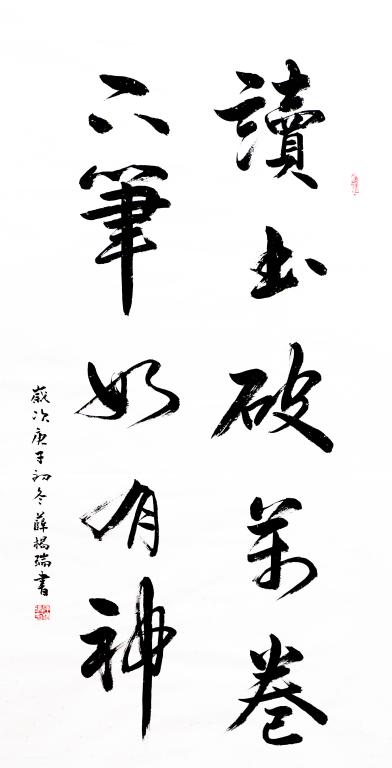 讀书破萬卷
下筆如有神
歲次庚子初冬薛楊瑞書